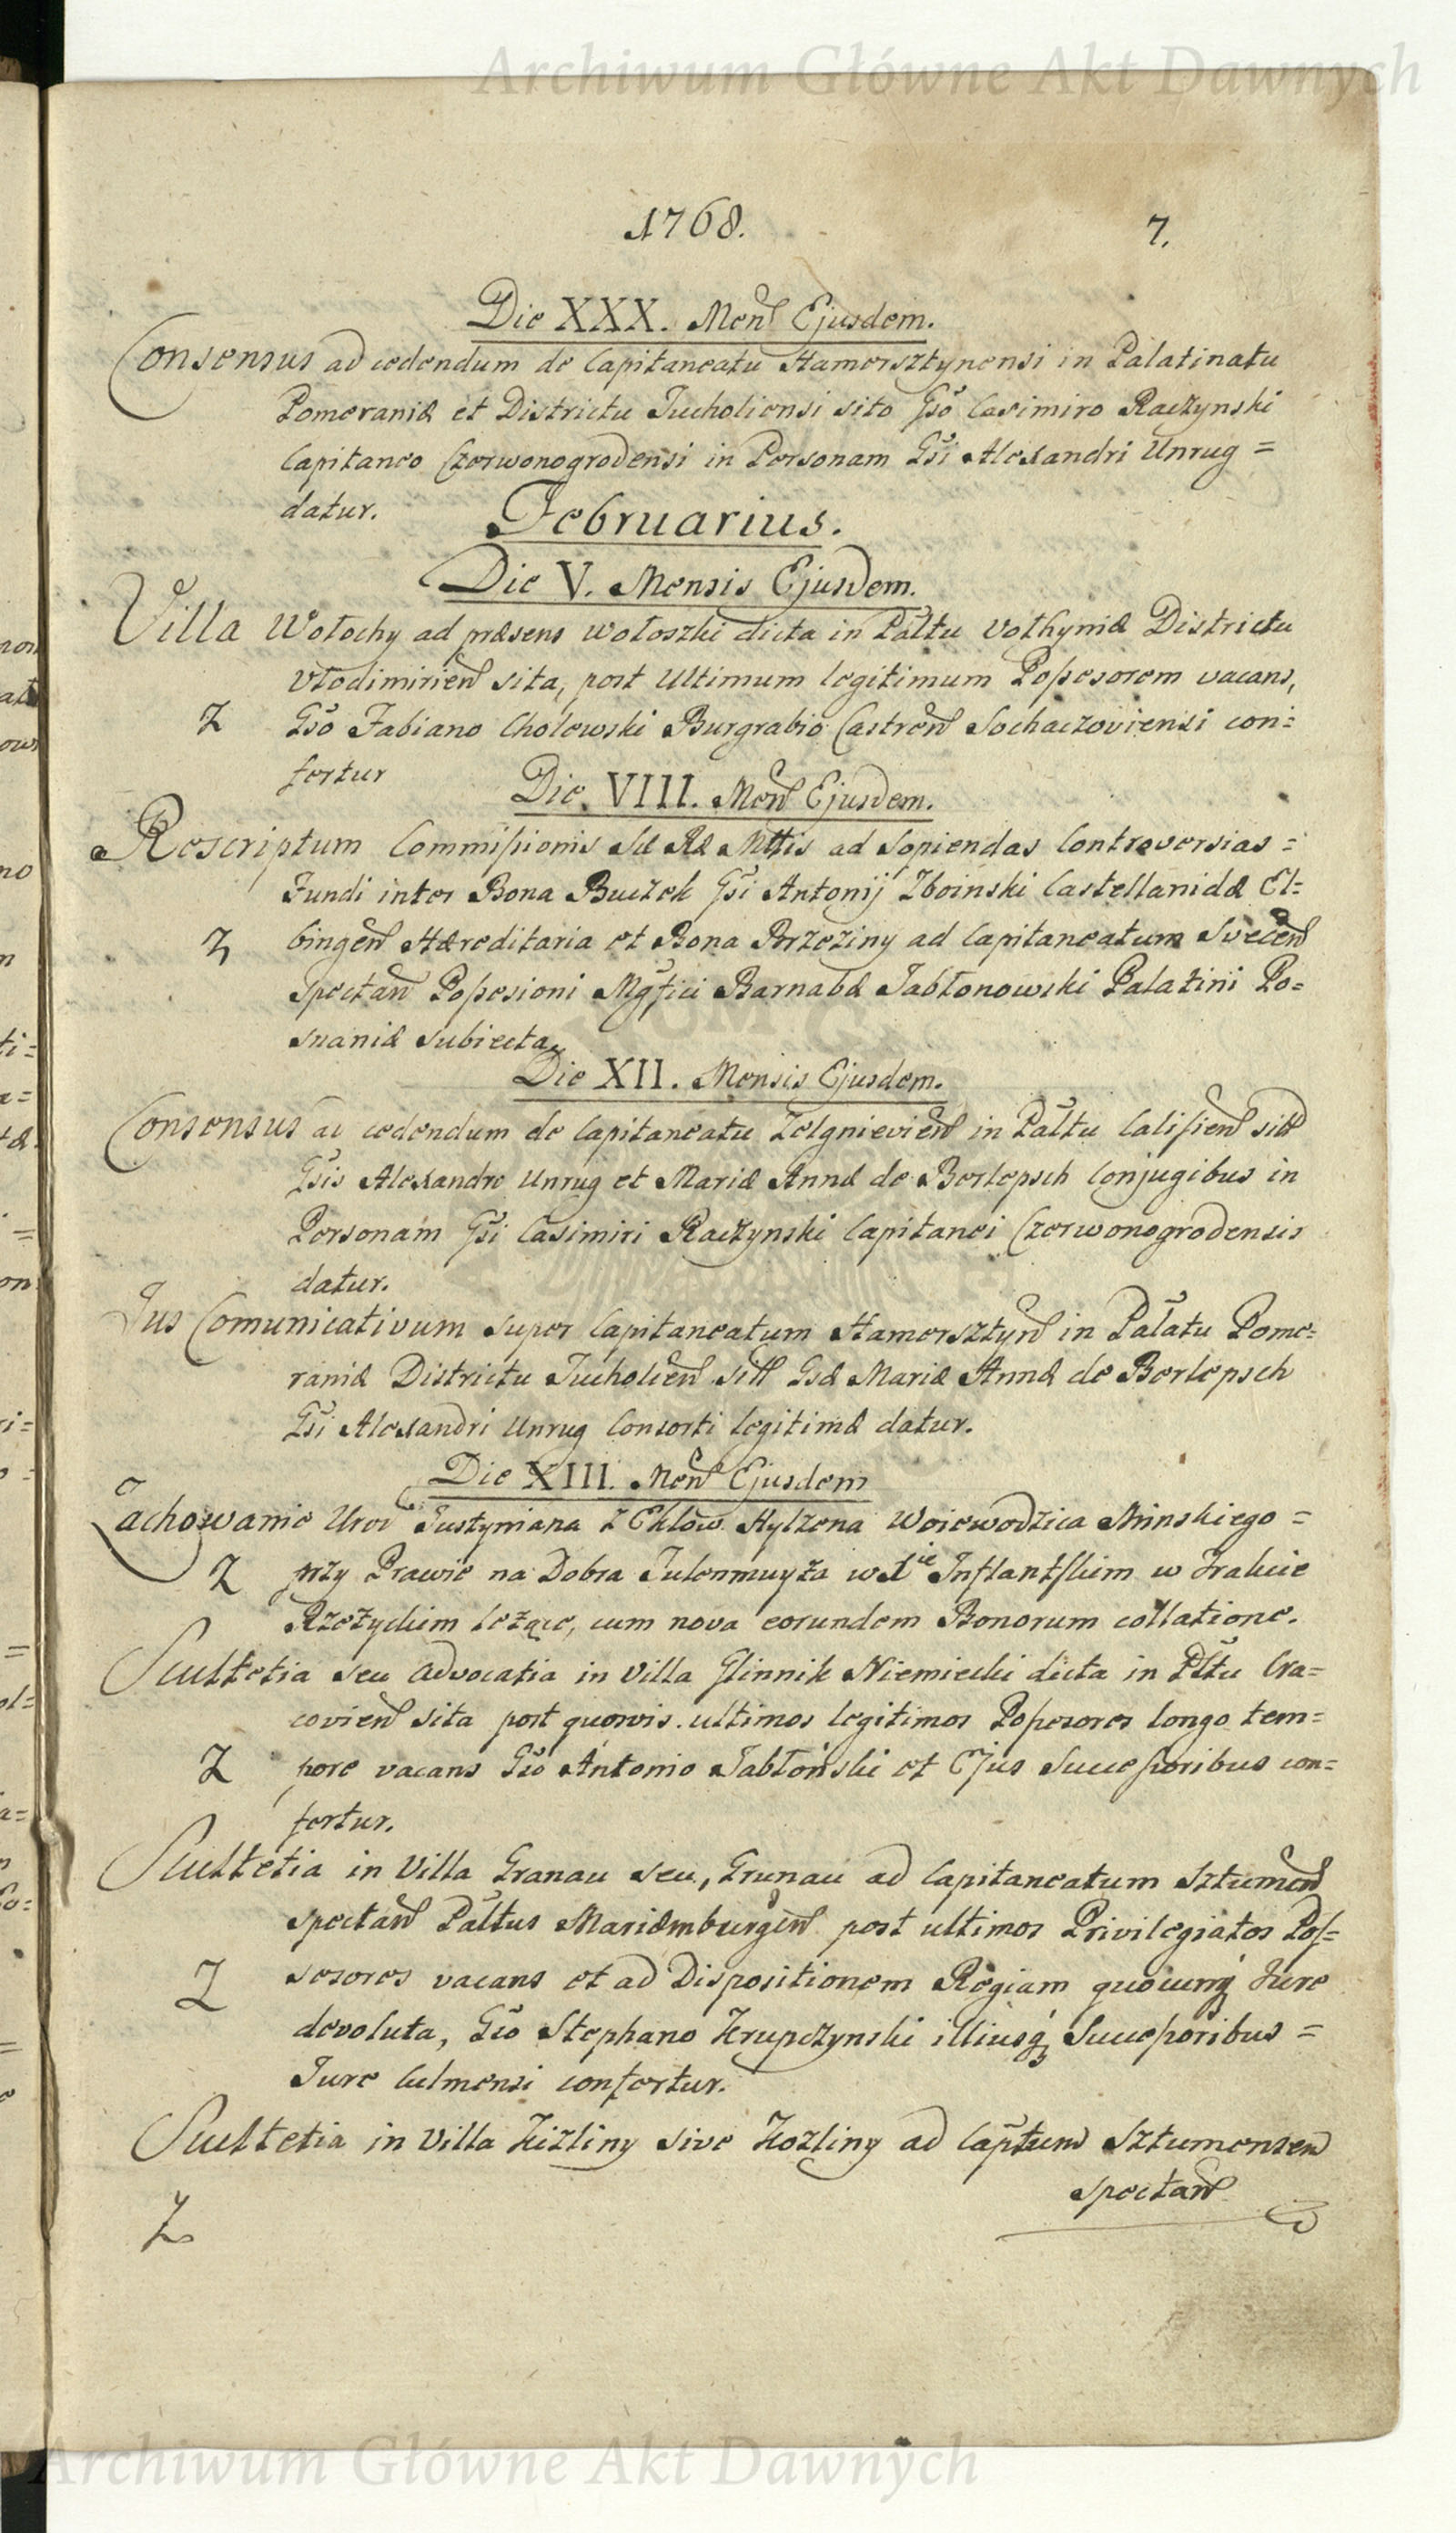 Archiwum Główne Akt Dawnych
1768.
7.
Die XXX. Menš Ejusdem.
Consensus ad cedendum de Capitaneatu Hamersztynensi in Palatinatu
Pomeraniæ et Districtu Tucholiensi sito Gso Casimiro Raczynski
Capitaneo Czerwonogrodensi in Personam Gsi Alexandri Unrug =
datur.
Februarius.
Die V. Mensis Ejusdem.
Villa Wołochy ad præsens Wołoszki dicta in Paltu Volhyniæ Districtu
Włodimirien sita, post Ultimum legitimum Possesorem vacans,
Z Gso Fabiano Cholewski Burgrabio Castren Sochaczoviensi con=
fertur
Die VIII. Men Ejusdem.
Rescriptum Commissionis Sæ Ræ Mttis ad Sopiendas Controversias =
Fundi inter Bona Buczek Gsi Antonij Zboinski Castellanidæ El=
Z bingen Hæreditaria et Bona Brzeziny ad Capitaneatum Svecen
Spectan Possesioni Mgfici Barnabæ Jabłonowski Palatini Po=
snaniæ subiecta.
Die XII. Mensis Ejusdem.
Consensus ad cedendum de Capitaneatu Zelgnievien in Paltu Calisien sitt
Gsis Alexandro Unrug et Mariæ Annæ de Berlepsch Conjugibus in
Personam Gsi Casimiri Raczynski Capitanei Czerwonogrodensis
datur.
Jus Comunicativum super Capitaneatum Hamersztyn in Palatu Pome=
raniæ Districtu Tucholien sitt Gsæ Mariæ Annæ de Berlepsch
Gsi Alexandri Unrug Consorti legitimæ datur.
Die XIII. Men Ejusdem
Zachowanie Urod Justyniana z Ekłow Hylzena Woiewodzica Minskiego =
Z przy Prawie na Dobra Tulenmuyża w Xie Inflantskim w Trakcie
Rzeżyckim leżące, cum nova eorundem Bonorum collatione.
Scultetia seu Advocatia in Villa Glinnik Niemiecki dicta in Pltu Cra=
covien sita post quosvis ultimos legitimos Possesores longo tem=
Z pore vacans Gso Antonio Jabłoński et Ejus Successoribus con=
fertur.
Scultetia in Villa Granau seu, Grunau ad Capitaneatum Sztumen
Spectan Paltus Mariæmburgen post ultimos Privilegiatos Pos=
Z sesores vacans et ad Dispositionem Regiam quocunq Jure
devoluta, Gso Stephano Krupczynski illiusq Successoribus =
Jure Culmensi confertur.
Scultetia in Villa Kizliny sive Kozliny ad Captum Sztumensen
spectan
Z
Archiwum Główne Akt Dawnych